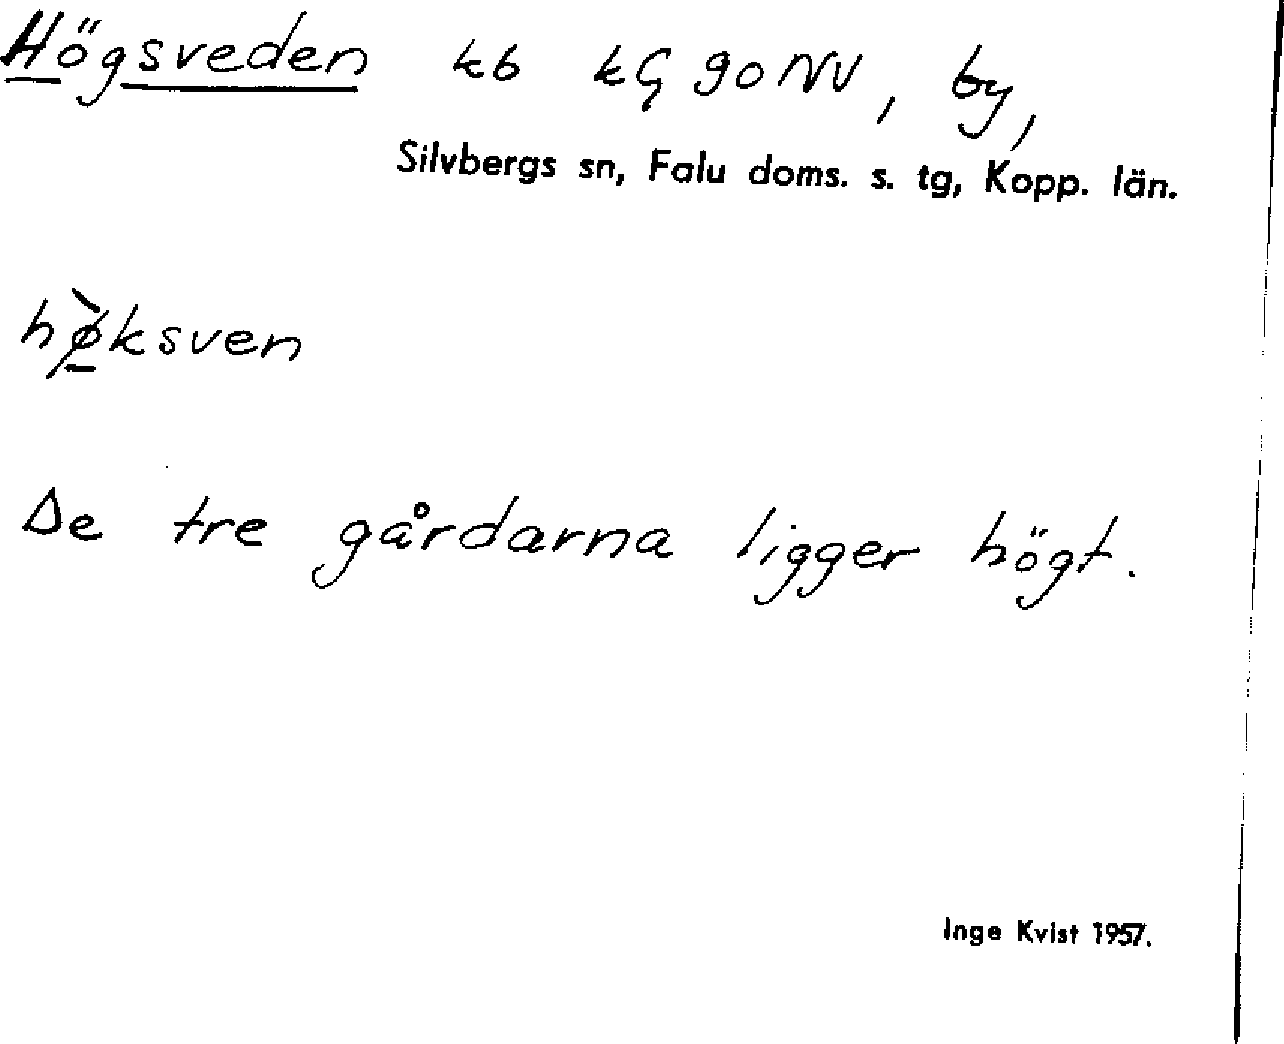 Högsveden kb kG 90 NV, by,
Silvbergs sn, Falu doms. s. tg, Kopp. län.
hø̠̀ksven
De tre gårdarna ligger högt.
Inge Kvist 1957.